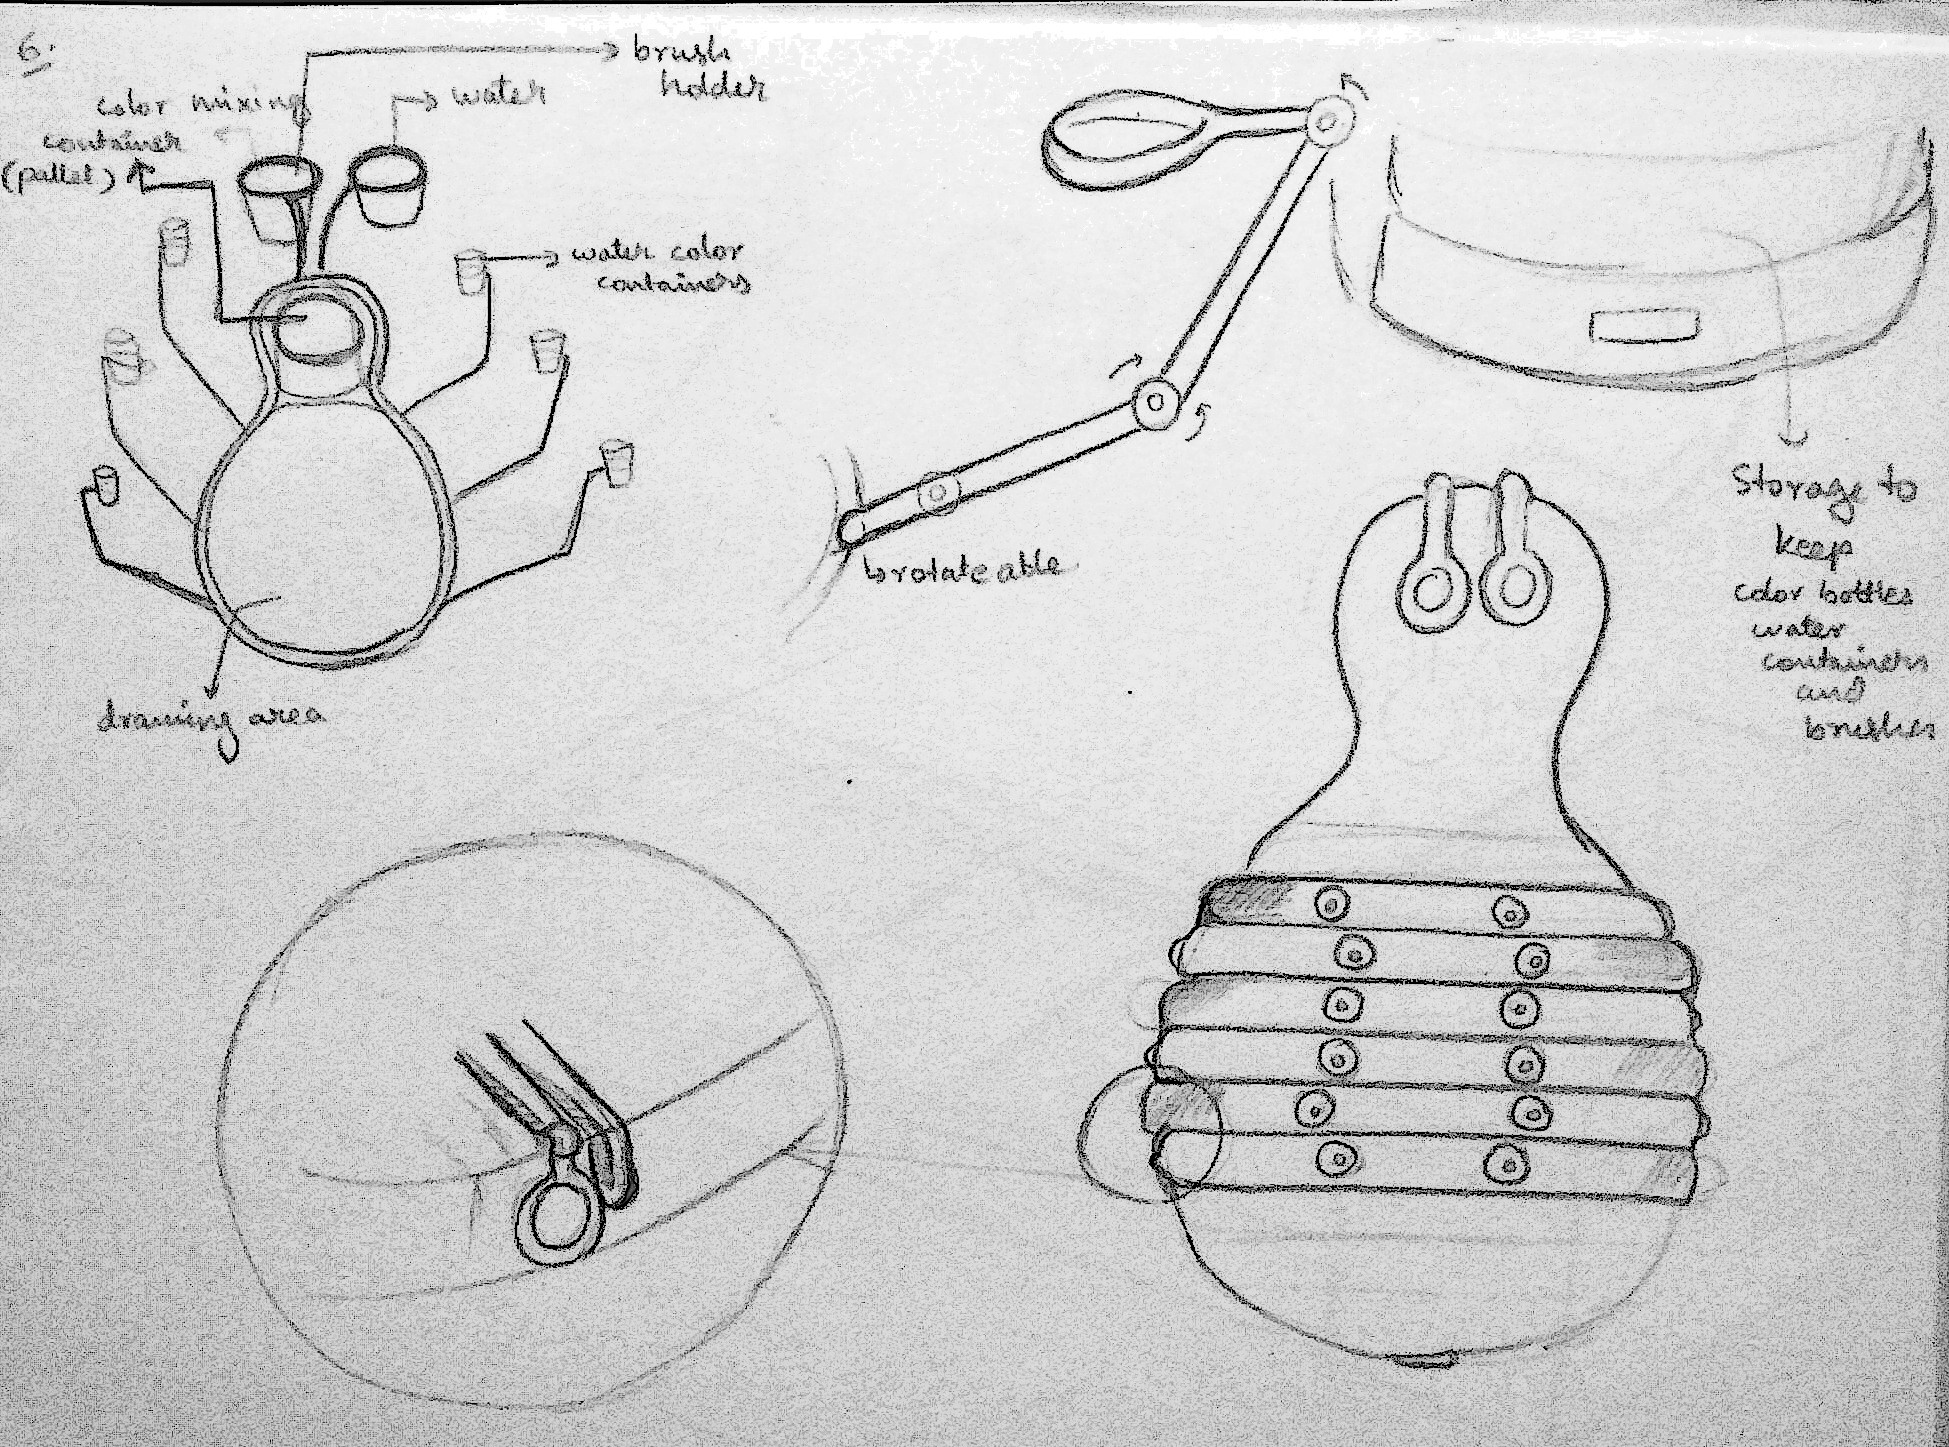 6.
brush
holder
color mixing
container
(pallet)
water
water color
containers
drawing area
rotateable
Storage to
keep
color bottles
water
containers
and
brushes